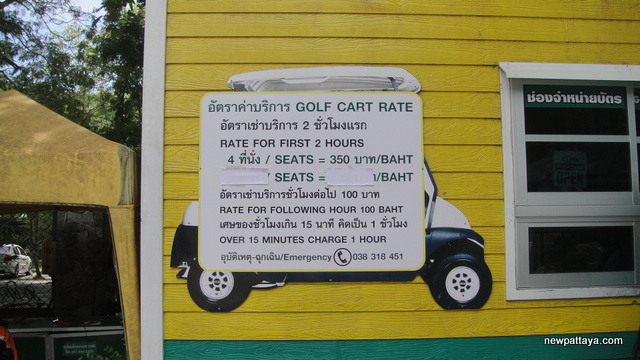 อัตราค่าบริการ GOLF CART RATE
อัตราเช่าบริการ 2 ชั่วโมงแรก
RATE FOR FIRST 2 HOURS
4 ที่นั่ง / SEATS = 350 บาท/BAHT
/ SEATS = /BAHT
อัตราเช่าบริการชั่วโมงต่อไป 100 บาท
RATE FOR FOLLOWING HOUR 100 BAHT
เศษของชั่วโมงเกิน 15 นาที คิดเป็น 1 ชั่วโมง
OVER 15 MINUTES CHARGE 1 HOUR
อุบัติเหตุ-ฉุกเฉิน/Emergency 038 318 451
ช่องจำหน่ายบัตร
OPEN
newpattaya.com